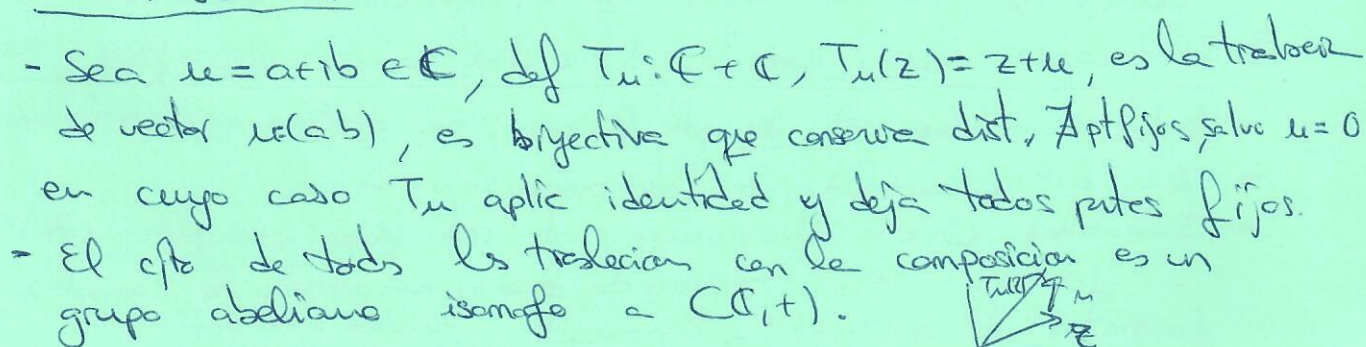 - Sea u = a+ib ∈ ℂ, def Tᵤ: ℂ→ℂ, Tᵤ(z) = z+u, es la
de vector u(a b), es biyectiva que conserva dist, ∄ pt fijos, salvo u = 0
en cuyo caso Tᵤ aplic identidad y deja todos fijos.
- El cjto de tods ls con la composicion es un
grupo abeliano isomofo a (ℂ,+).
Tᵤ(z) u
z